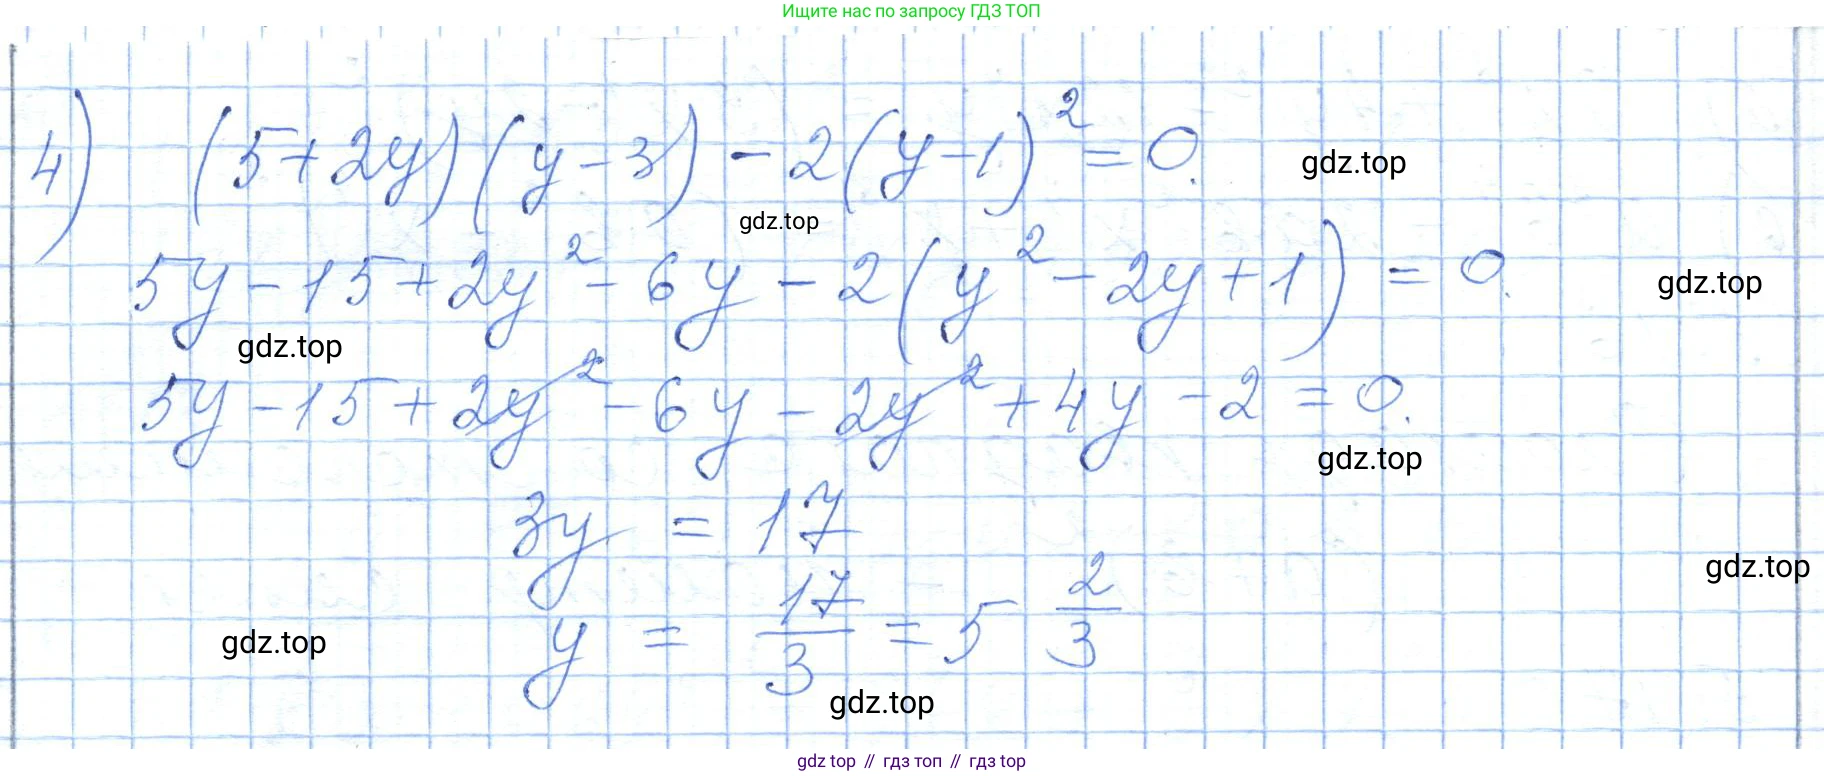 Ищите нас по запросу ГДЗ ТОП
4) (5+2y)(y-3)-2(y-1)²=0.
gdz.top
gdz.top
5y-15+2y²-6y-2(y²-2y+1)=0.
gdz.top
gdz.top
5y-15+2y²-6y-2y²+4y-2=0.
gdz.top
3y = 17
gdz.top
y = 17/3 = 5 2/3
gdz.top
gdz.top
gdz top // гдз топ // гдз top